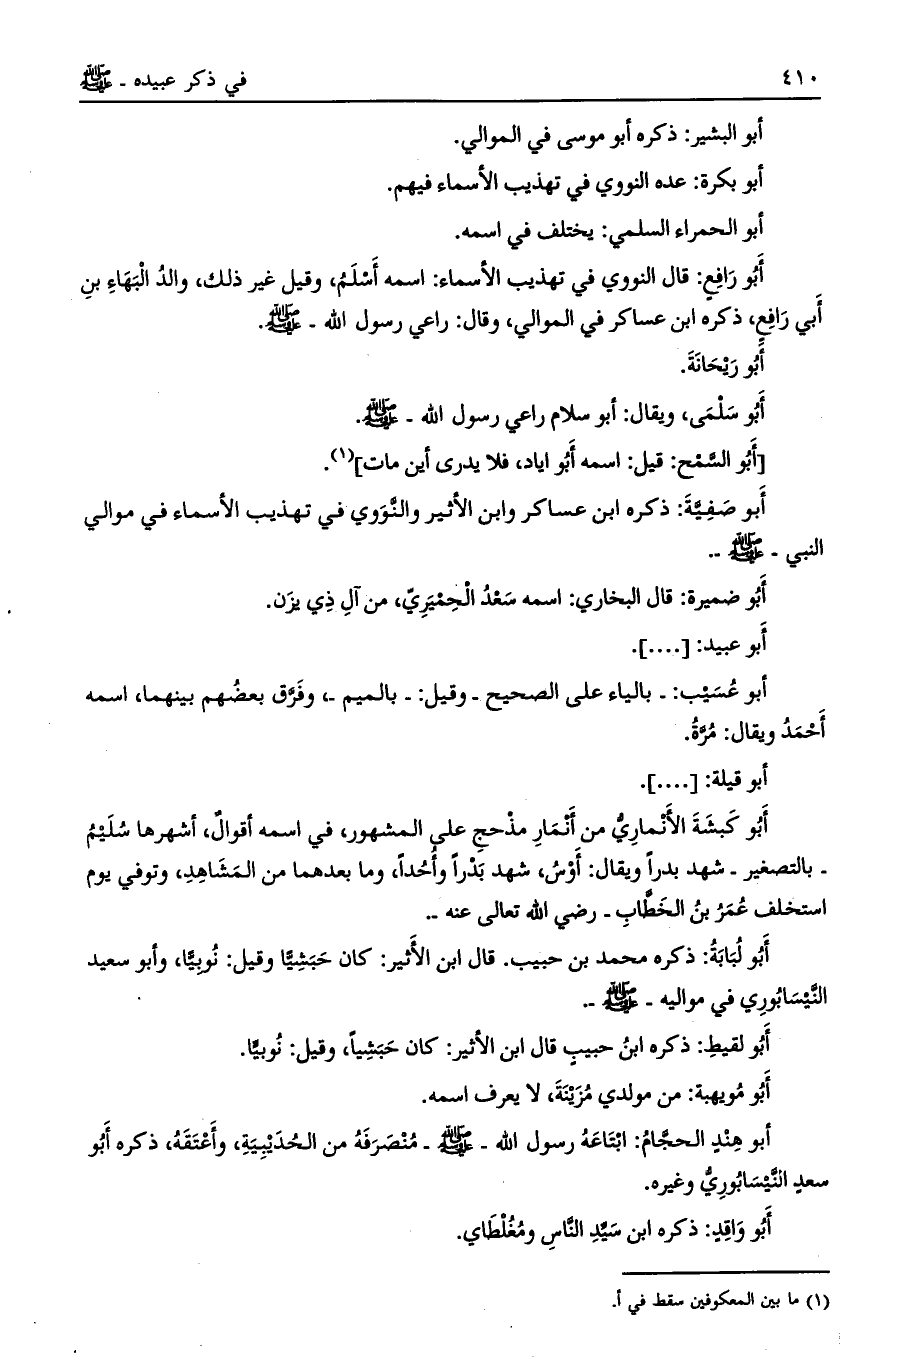 ٤١٠
في ذكر عبيده - ﷺ
أبو البشير: ذكره أبو موسى في الموالي.
أبو بكرة: عده النووي في تهذيب الأسماء فيهم.
أبو الحمراء السلمي: يختلف في اسمه.
أَبُو رَافِعٍ: قال النووي في تهذيب الأسماء: اسمه أَسْلَمُ، وقيل غير ذلك، والدُ الْبَهَاءِ بنِ
أَبي رَافِعٍ، ذكره ابن عساكر في الموالي، وقال: راعي رسول الله - ﷺ.
أَبُو رَيْحَانَةَ.
أَبُو سَلْمَى، ويقال: أبو سلام راعي رسول الله - ﷺ.
[أَبُو السَّمْح: قيل: اسمه أَبُو اياد، فلا يدرى أين مات](١).
أَبو صَفِيَّةَ: ذكره ابن عساكر وابن الأثير والنَّوَوي في تهذيب الأسماء في موالي
النبي - ﷺ -.
أَبُو ضميرة: قال البخاري: اسمه سَعْدُ الْحِمْيَرِيّ، من آلِ ذِي يزَن.
أَبو عبيد: [....].
أبو عُسَيْب: - بالياء على الصحيح - وقيل: - بالميم -، وفَرَّق بعضُهم بينهما، اسمه
أَحْمَدُ ويقال: مُرَّةُ.
أبو قيلة: [....].
أَبُو كَبشَةَ الأَنْمارِيُّ من أَنْمَارِ مذْحجِ على المشهور، في اسمه أقوالٌ، أشهرها سُلَيْمُ
- بالتصغير - شهد بدراً ويقال: أَوْسُ، شهد بَدْراً وأُحُداً، وما بعدهما من المَشَاهِدِ، وتوفي يوم
استخلف عُمَرُ بنُ الخَطَّابِ - رضي الله تعالى عنه -.
أَبُو لُبَابَةُ: ذكره محمد بن حبيب. قال ابن الأَثير: كان حَبَشِيًّا وقيل: نُوبِيًّا، وأبو سعيد
النَّيْسَابُورِي في مواليه - ﷺ -.
أَبُو لقيطِ: ذكره ابنُ حبيبٍ قال ابن الأثير: كان حَبَشِياً، وقيل: نُوبيًّا.
أَبُو مُويهبة: من مولدي مُزَيْنَةَ، لا يعرف اسمه.
أبو هِنْدٍ الحجَّامُ: ابْتَاعَهُ رسول الله - ﷺ - مُنْصَرَفَهُ من الحُدَيْبِيَةِ، وأَعْتَقَهُ، ذكره أَبُو
سعدٍ النَّيْسَابُورِيُّ وغيره.
أَبُو وَاقِدٍ: ذكره ابن سَيِّدِ النَّاسِ ومُغُلْطَاي.
(١) ما بين المعكوفين سقط في أ.